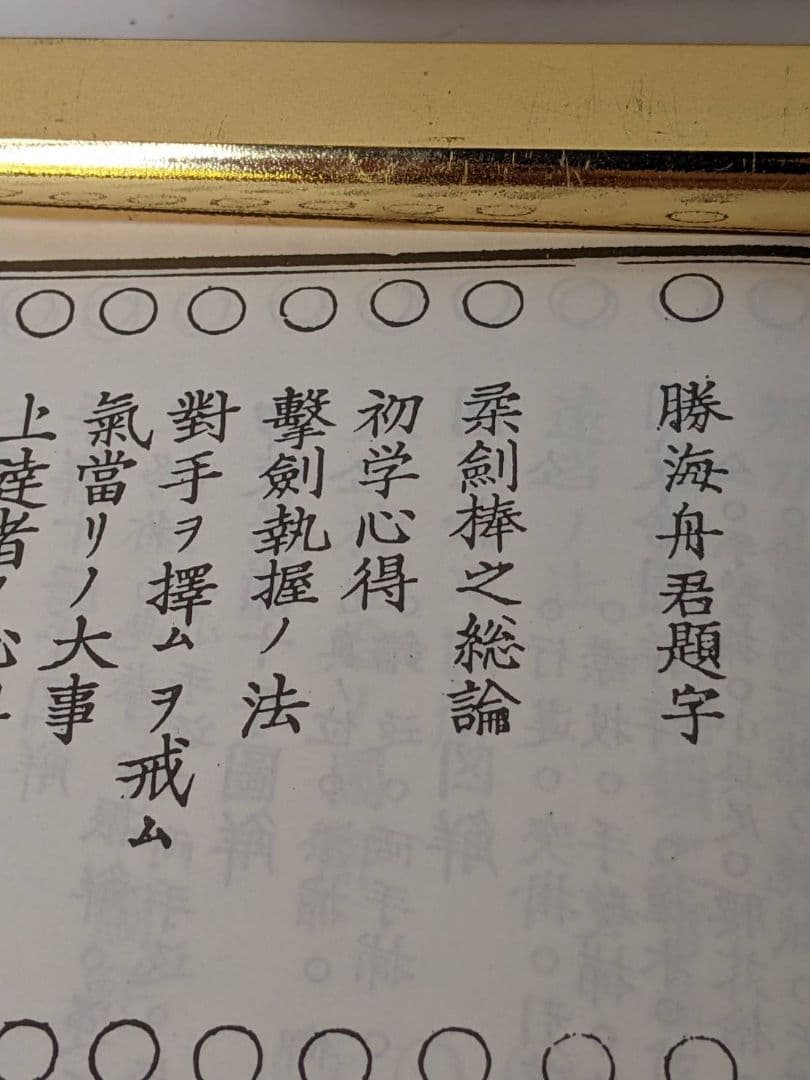 ○ 勝海舟君題字
○ 柔劍棒之総論
○ 初学心得
○ 擊劍執握ノ法
○ 對手ヲ擇ムヲ戒ム
○ 氣當リノ大事
○ 上達者ノ